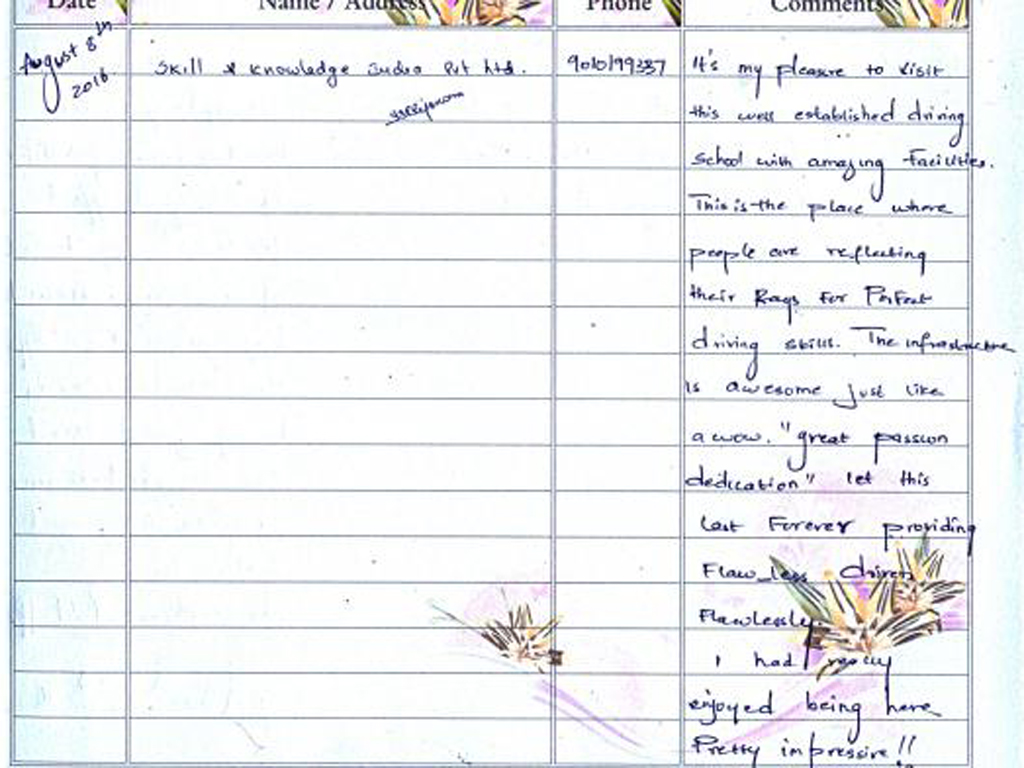 Date Name / Address Phone Comments
August 8th
2016
Skill & Knowledge India Pvt Ltd. 9010199337
It's my pleasure to visit
this well established driving
school with amazing facilities.
This is the place where
people are reflecting
their Rays for Perfect
driving skills. The infrastructure
is awesome just like
a wow. "great passion
dedication" let this
last Forever providing
Flaw_less drivers
Flawlessly.
I had really
enjoyed being here
Pretty impressive !!